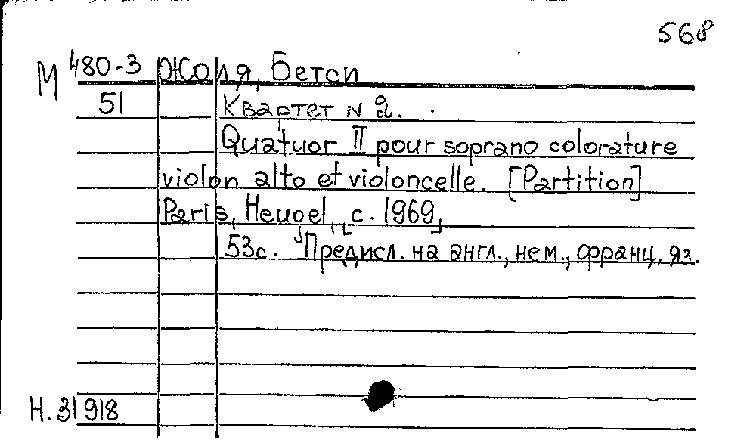 568
М 480-3 Жоля, Бетси
51 Квартет N 2.
Quatuor II pour soprano colorature
violon alto et violoncelle. [Partition]
Paris, Heugel, [c. 1969]
53с. Предисл. на англ., нем., франц. яз.
Н. 31918